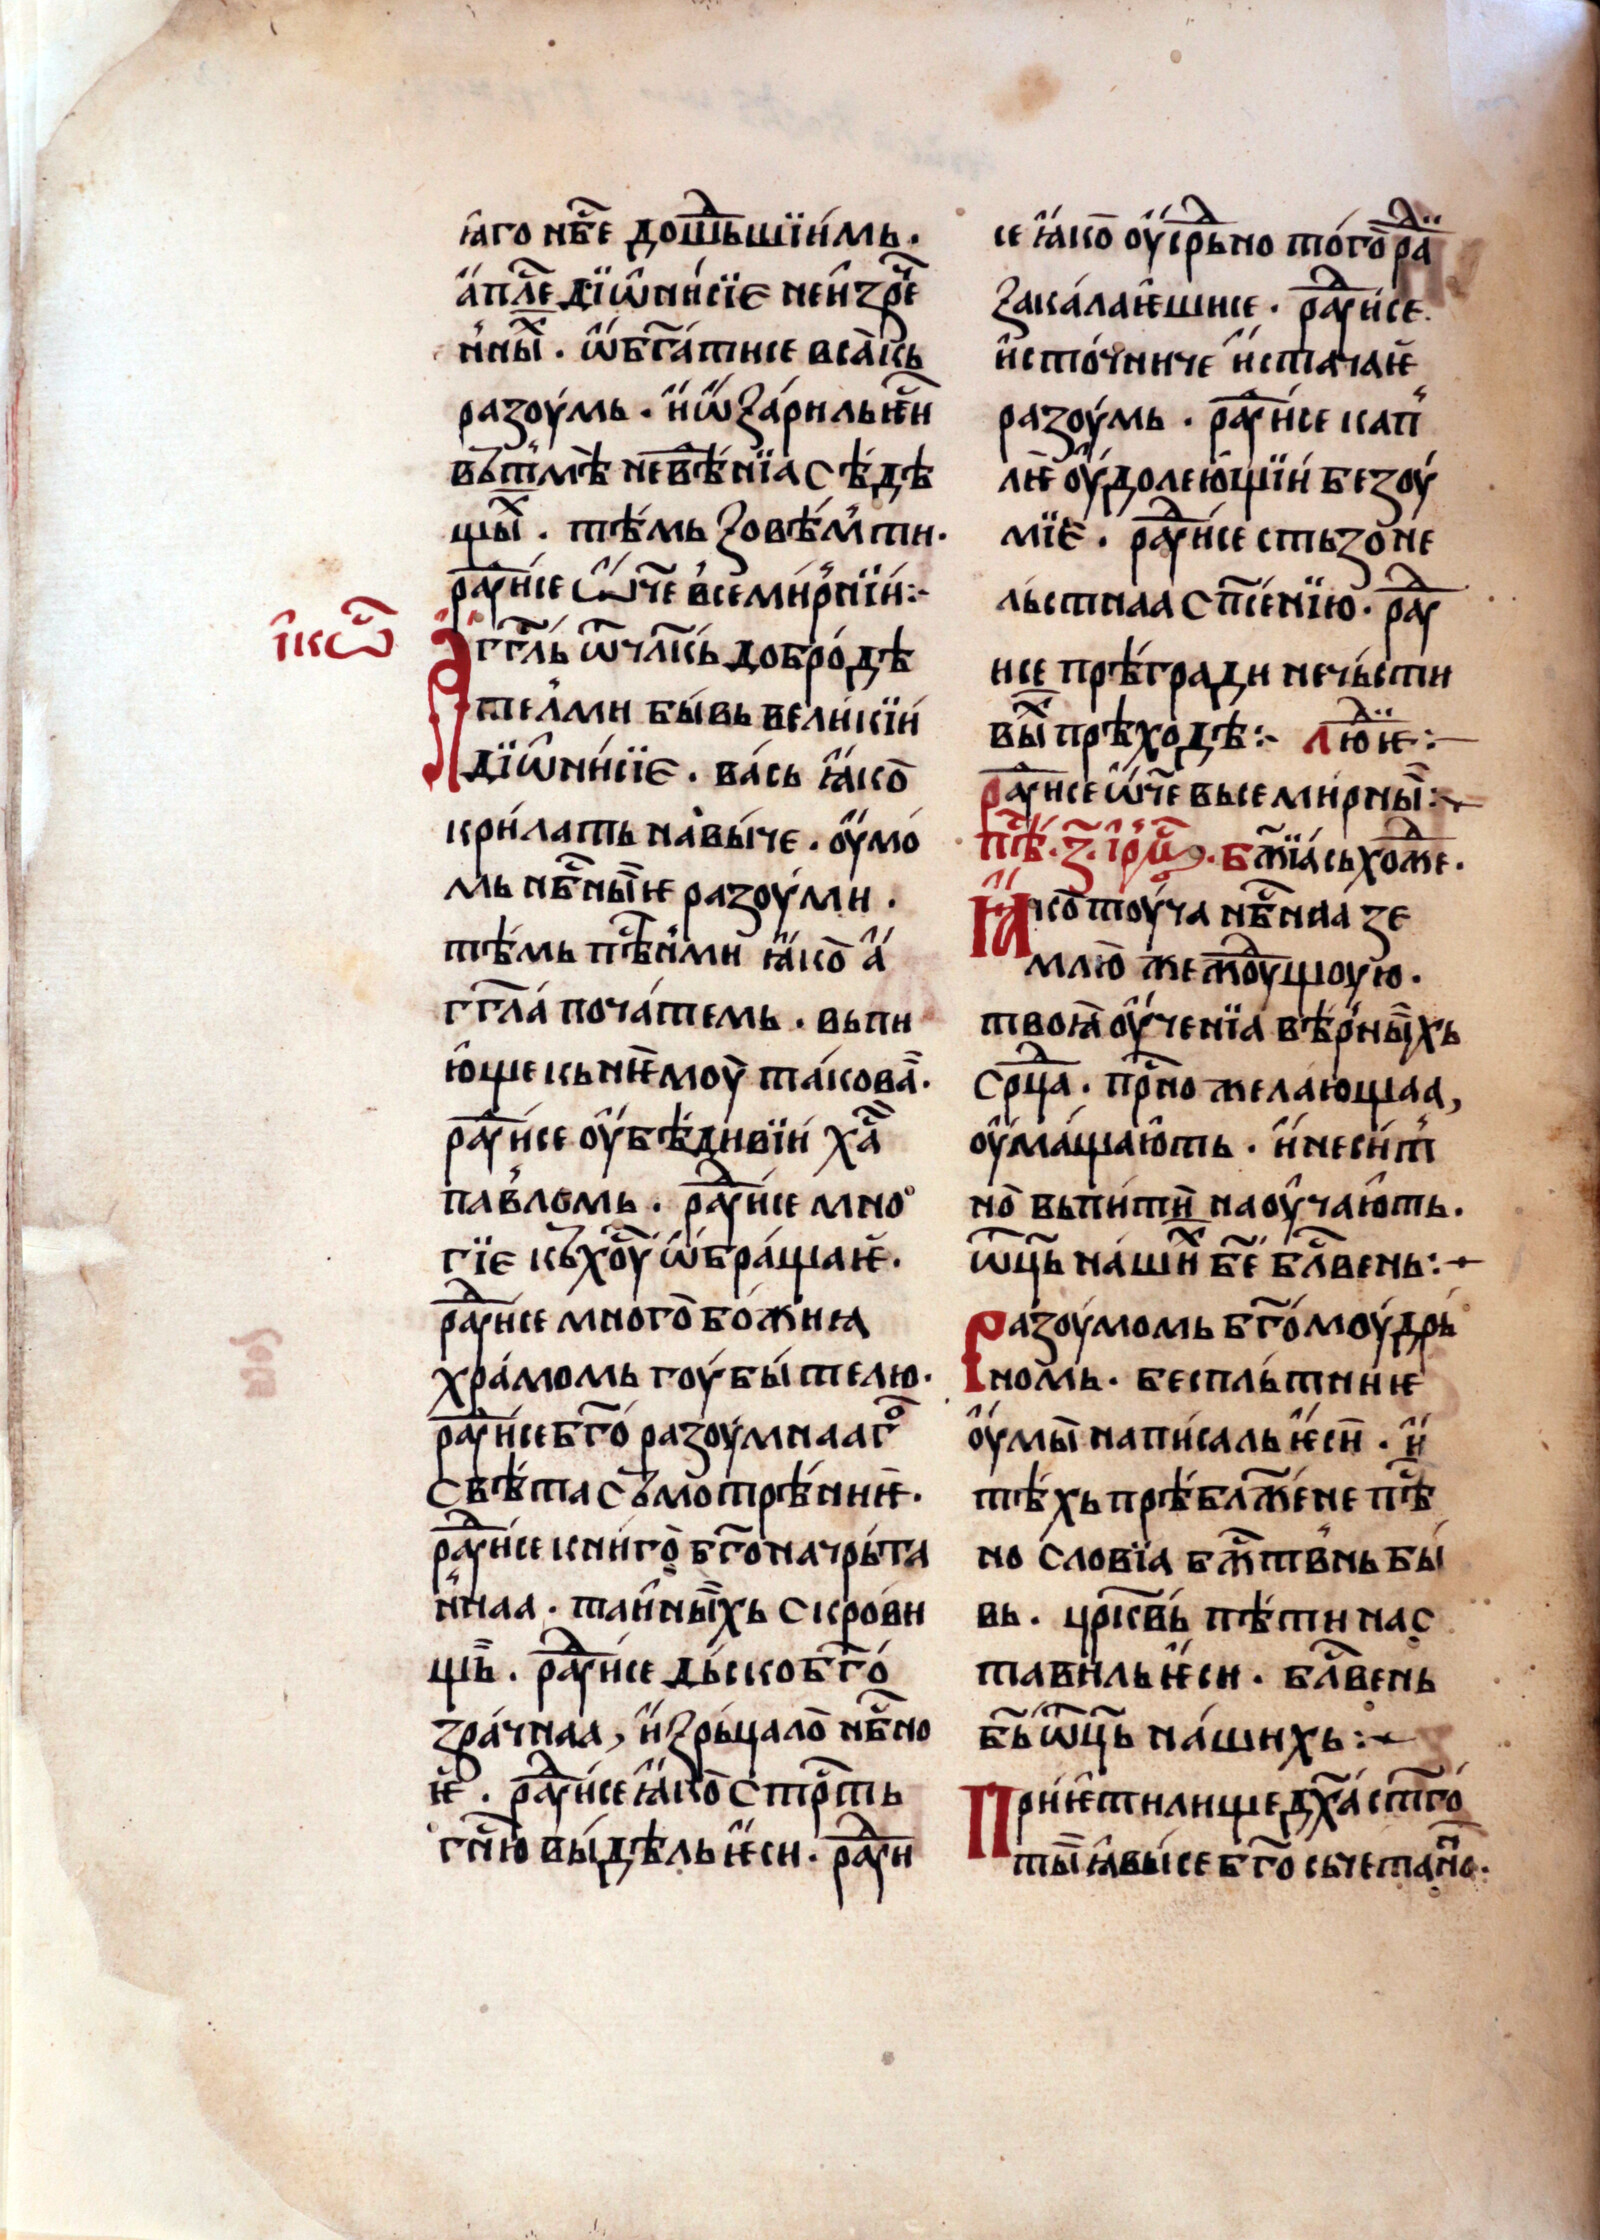 ꙗго нб҃е дошⷣьшїимь ·
а҆пⷭ҇ле дїѡнисїе неизрⷱ҇е
нныⷯ · ѡ҆бг҃атисе всакь
разоумь · и҆ѡ҆зарильѥⷭ҇и
вьтⸯмѣ невѣⷣнїа сѣде
щыⷯ · тѣмь зовѣмⸯти ·
раⷣуисе ѡ҆ч҃е всемирⸯнїи :~
і҆кѡⷭ҇
Агг҃ль ѿчлⷭ҇кь добродѣ
телⸯми бывь великїи
дїѡнисїе · вась ꙗко
крилать навыче · оумо
мь нбⷭ҇ныѥ разоуми ·
тѣмь пⷭ҇ѣнⸯми ꙗко а
гг҃ла початемь · вьпи
ющекьнѥмоу такова҃ ·
раⷣуисе оубѣдивїи хⷭ҇а
павⸯломь · раⷣуисе мно
гїе кьхоⷭ҇у ѡ҆бращаѥ ·
раⷣуисе многобожиꙗ
храмомь гоубытелю ·
раⷣуисебг҃о разоумнаагⷪ
свѣта сьмотрѣниѥ ·
раⷣуисе книго бг҃оначрьта
нⸯнаа · таиныхь скрови
щь · раⷣуисе дьскобг҃о
зрачнаа , и҆зрьцало нбⷭ҇но
ѥ · раⷣуисе ꙗко стрⷭ҇ть
гнⷭ҇ю выдѣльѥси · раⷣуи
се ꙗко оусрⷣьно тогораⷣї
закалаѥшисе · раⷣуисе ·
источниче источаѥ
разоумь · раⷣуисе капⸯ
лѥ оудолеющїи безоу
мїе · раⷣуисе стьзоне
льстнаа сп҃сенїю · раⷣу
исе прѣгради нечьсти
выⷯ прѣходѣ :~ люⷣїѥ :~
раⷣуисе ѡ҆ч҃е вьсемирны҃ :~
пⷭ҇ѣ · з҃ · і҆рмⷭ҇ · бж҃їа сьхоⷣже ·
Ꙗко тоуча нбⷭ҇наа зе
млю жежⷣоущоую ·
твоꙗ оученїа вѣрныⷭ҇хь
срⷣца · прⷭ҇но желающаа ,
оумащають · и҆несит
но вьпити наоучають ·
ѿць нашиⷯ бе҃ блⷭ҇вень :~
Разоумомь бг҃омоудрь
номь · бесплътниѥ
оумы написаль ѥси · и
тѣхь прѣблж҃ене пⷭ҇ѣ
но словїа бжⷭ҇твⸯнь бы
вь · црк҃вь пѣти нас
тавиль ѥси · блⷭ҇вень
бь҃ ѿць нашихь :~
Приѥтилище дх҃а ст҃го
ты ꙗвысе бг҃о сьчетанⸯно ·